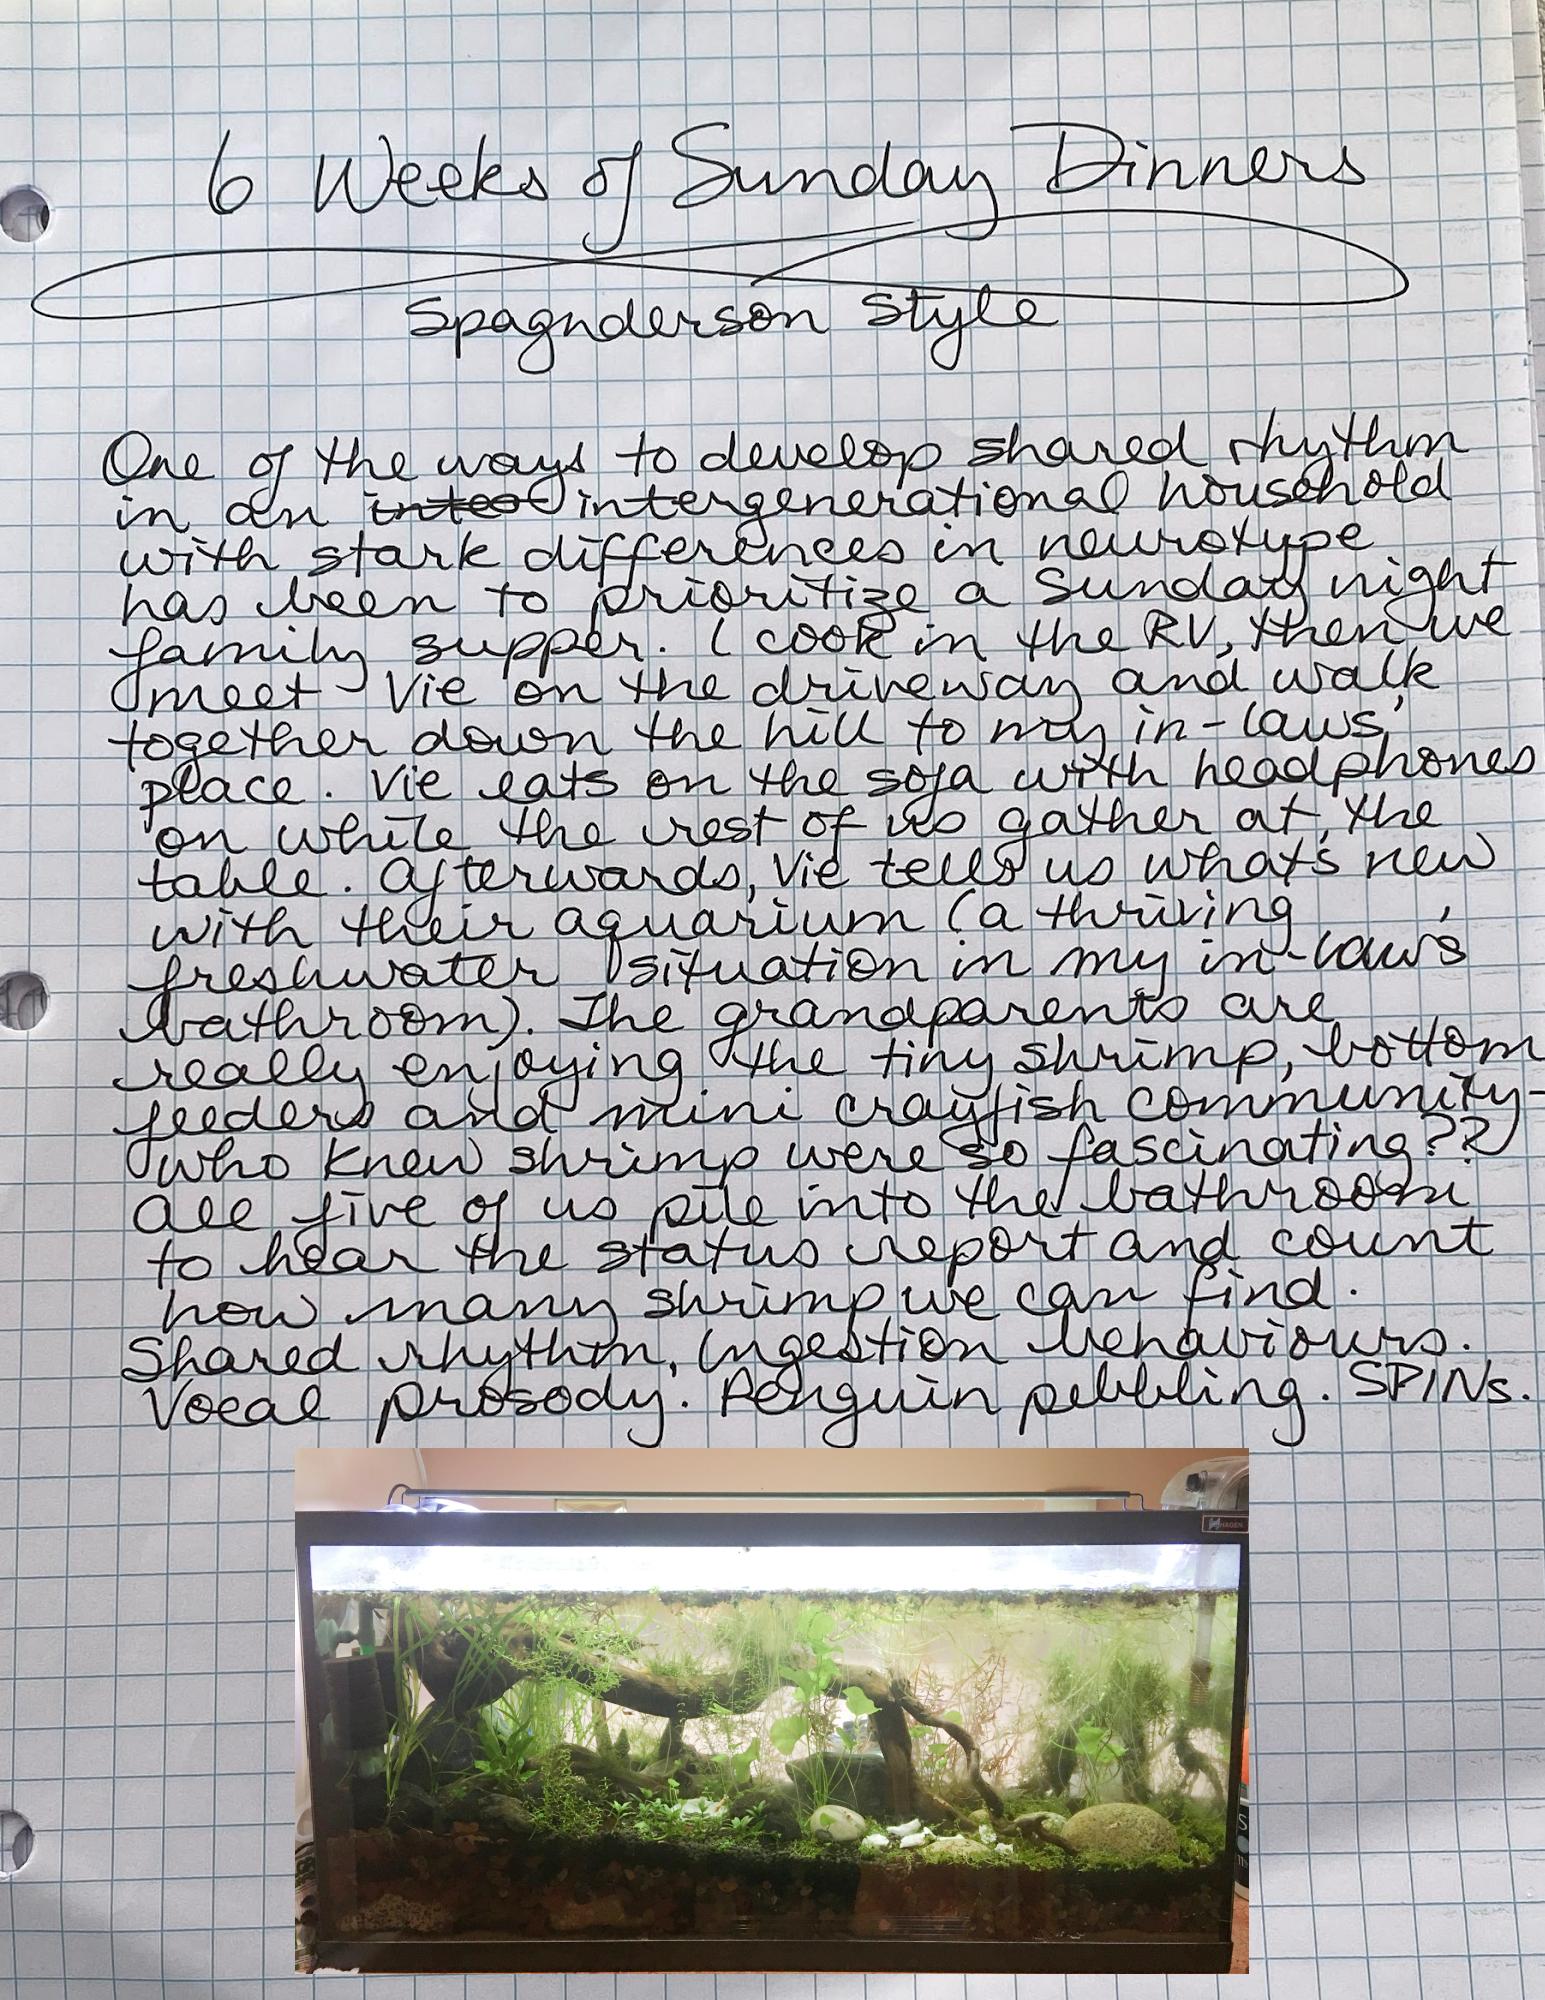 6 Weeks of Sunday Dinners
Spagnderson Style
One of the ways to develop shared rhythm
in an intergenerational household
with stark differences in neurotype
has been to prioritize a Sunday night
family supper. I cook in the RV, then we
meet Vie on the driveway and walk
together down the hill to my in-laws'
place. Vie eats on the sofa with headphones
on while the rest of us gather at the
table. Afterwards, Vie tells us what's new
with their aquarium (a thriving
freshwater situation in my in-law's
bathroom). The grandparents are
really enjoying the tiny shrimp, bottom
feeders and mini crayfish community-
who knew shrimp were so fascinating??
All five of us pile into the bathroom
to hear the status report and count
how many shrimp we can find.
Shared rhythm, Ingestion behaviours.
Vocal prosody. Penguin pebbling. SPINs.
HAGEN
S